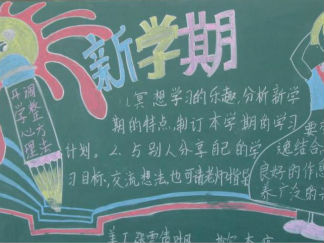 新学期
开学
调整心理方法
1、冥想学习的乐趣,分析新学
期的特点,制订本学期的学习
计划。2、与别人分享自己的学
习目标,交流想法,也可请老师指导
要
速结合
良好的作息
养广泛的
美工